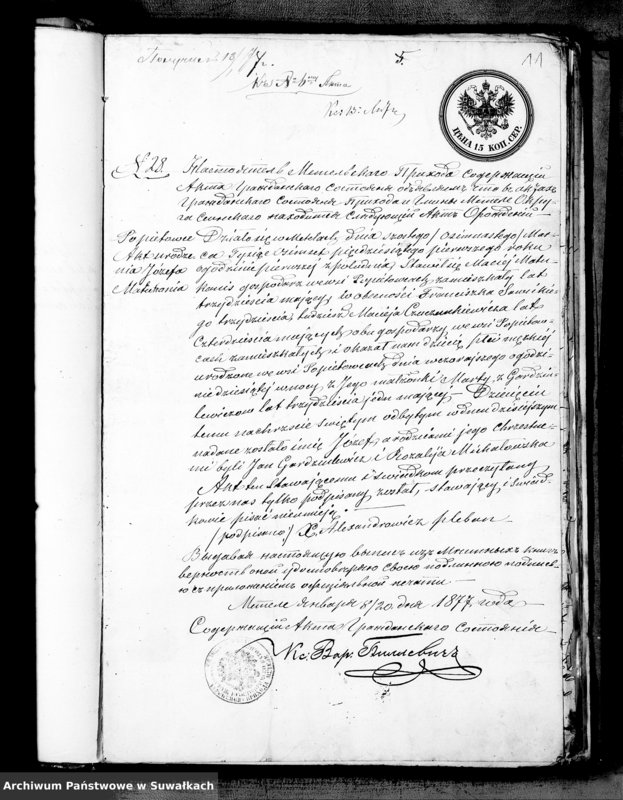 5.
11
къ № 6му Акта
Кс: В: Л
ЦѢНА 15 КОП. СЕР.
№ 28. Настоятель Метельскаго Прихода содержащій
Акта Гражданскаго Состоянія объявляемъ что въ актахъ
Гражданскаго Состоянія Прихода и Гмины Метеле Окру-
га Сейнскаго находится слѣдующій Актъ О рожденіи —
Popiełowce Działo się w Metelach, dnia szóstego / osiemnastego / Mar-
Akt urodze- ca Tysiąc Ośmset pięćdziesiątego pierwszego roku
nia Józefa o godzinie pierwszej z południa, Stawił się Maciej Matu-
Maturania gospodarz we wsi zamieszkały lat
trzydzieścia mający, w obecności Franciszka
go trzydzieścia, tudzież Macieja lat
czterdzieścia mających obu gospodarzy we wsi
cach zamieszkałych i okazał nam dziecię płci męzkiej
urodzone we wsi dnia wczorajszego o godzi-
nie dziesiątej w nocy, z Jego małżonki Marty z Gardziu-
lewiczów lat trzydzieścia jeden mającej. Dziecięciu
temu na chrzcie świętym odbytym w dniu dzisiejszym
nadane zostało imię Józef, a rodzicami jego chrzestne-
mi byli Jan Gardziulewicz i Rozalija Michałowska
Akt ten stawającemu i świadkom przeczytany,
przez nas tylko podpisany został, stawający i świad-
kowie pisać nieumieją.
/podpisano/ X. Alexandrowicz pleban —
Выдавая настоящую выпись изъ метричныхъ книгъ
вѣрность оной удостовѣряю своею подлинною подписью
съ приложеніемъ оффиціальной печати —
Метеле Января 8/20 дня 1877 года
Содержащій Акта Гражданскаго Состоянія —
Кс: Вар:
Archiwum Państwowe w Suwałkach